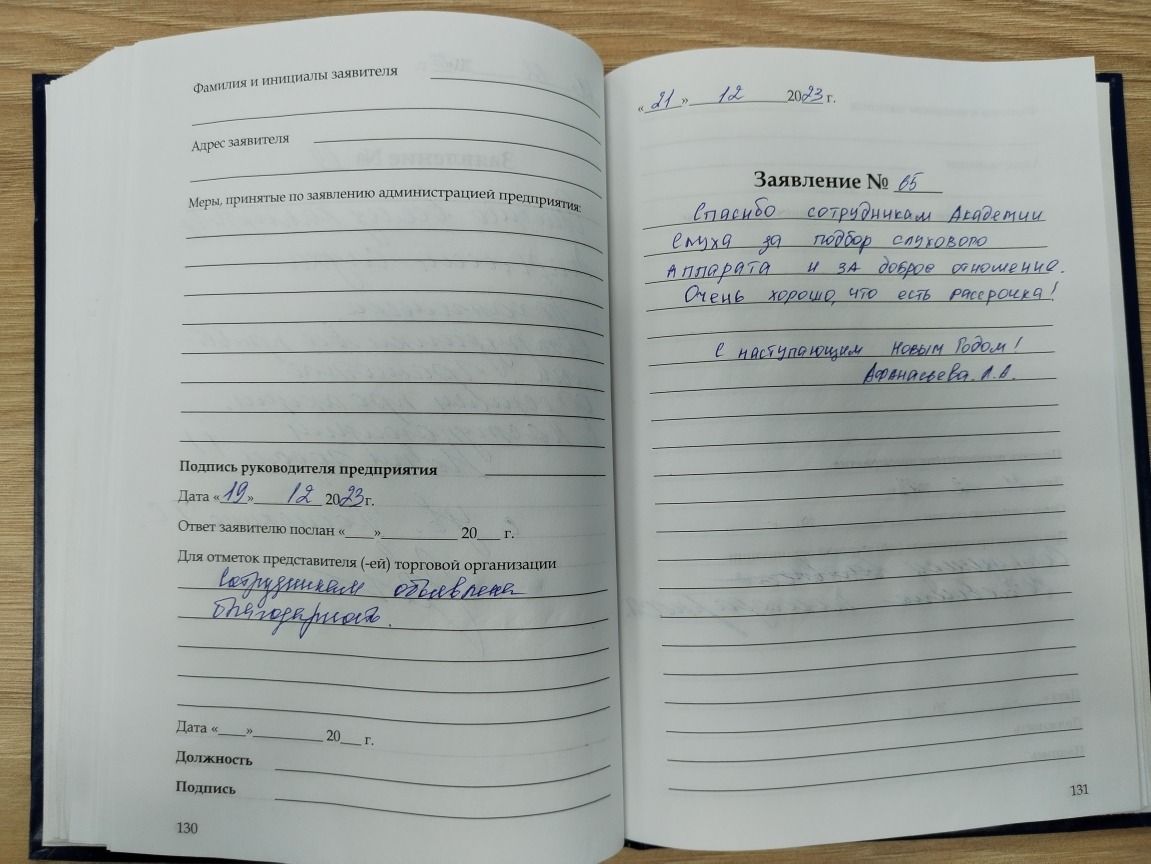 Фамилия и инициалы заявителя
Адрес заявителя
Меры, принятые по заявлению администрацией предприятия:
Подпись руководителя предприятия
Дата «19» 12 2023г.
Ответ заявителю послан «____»__________ 20___ г.
Для отметок представителя (-ей) торговой организации
Сотрудникам объявлена
благодарность.
Дата «____»_________ 20___ г.
Должность
Подпись
130
«21» 12 2023 г.
Заявление № 65
Спасибо сотрудникам Академии
Слуха за подбор слухового
аппарата и за доброе отношение.
Очень хорошо, что есть рассрочка!
С наступающим Новым Годом!
Афанасьева. Л.А.
131